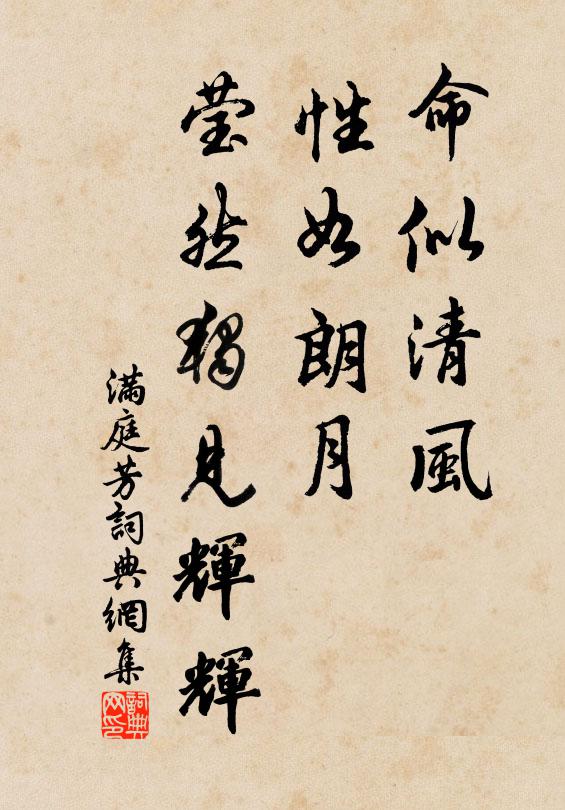 命似清風
性如朗月
瑩然獨見輝輝
滿庭芳詞典網集
詞典網印